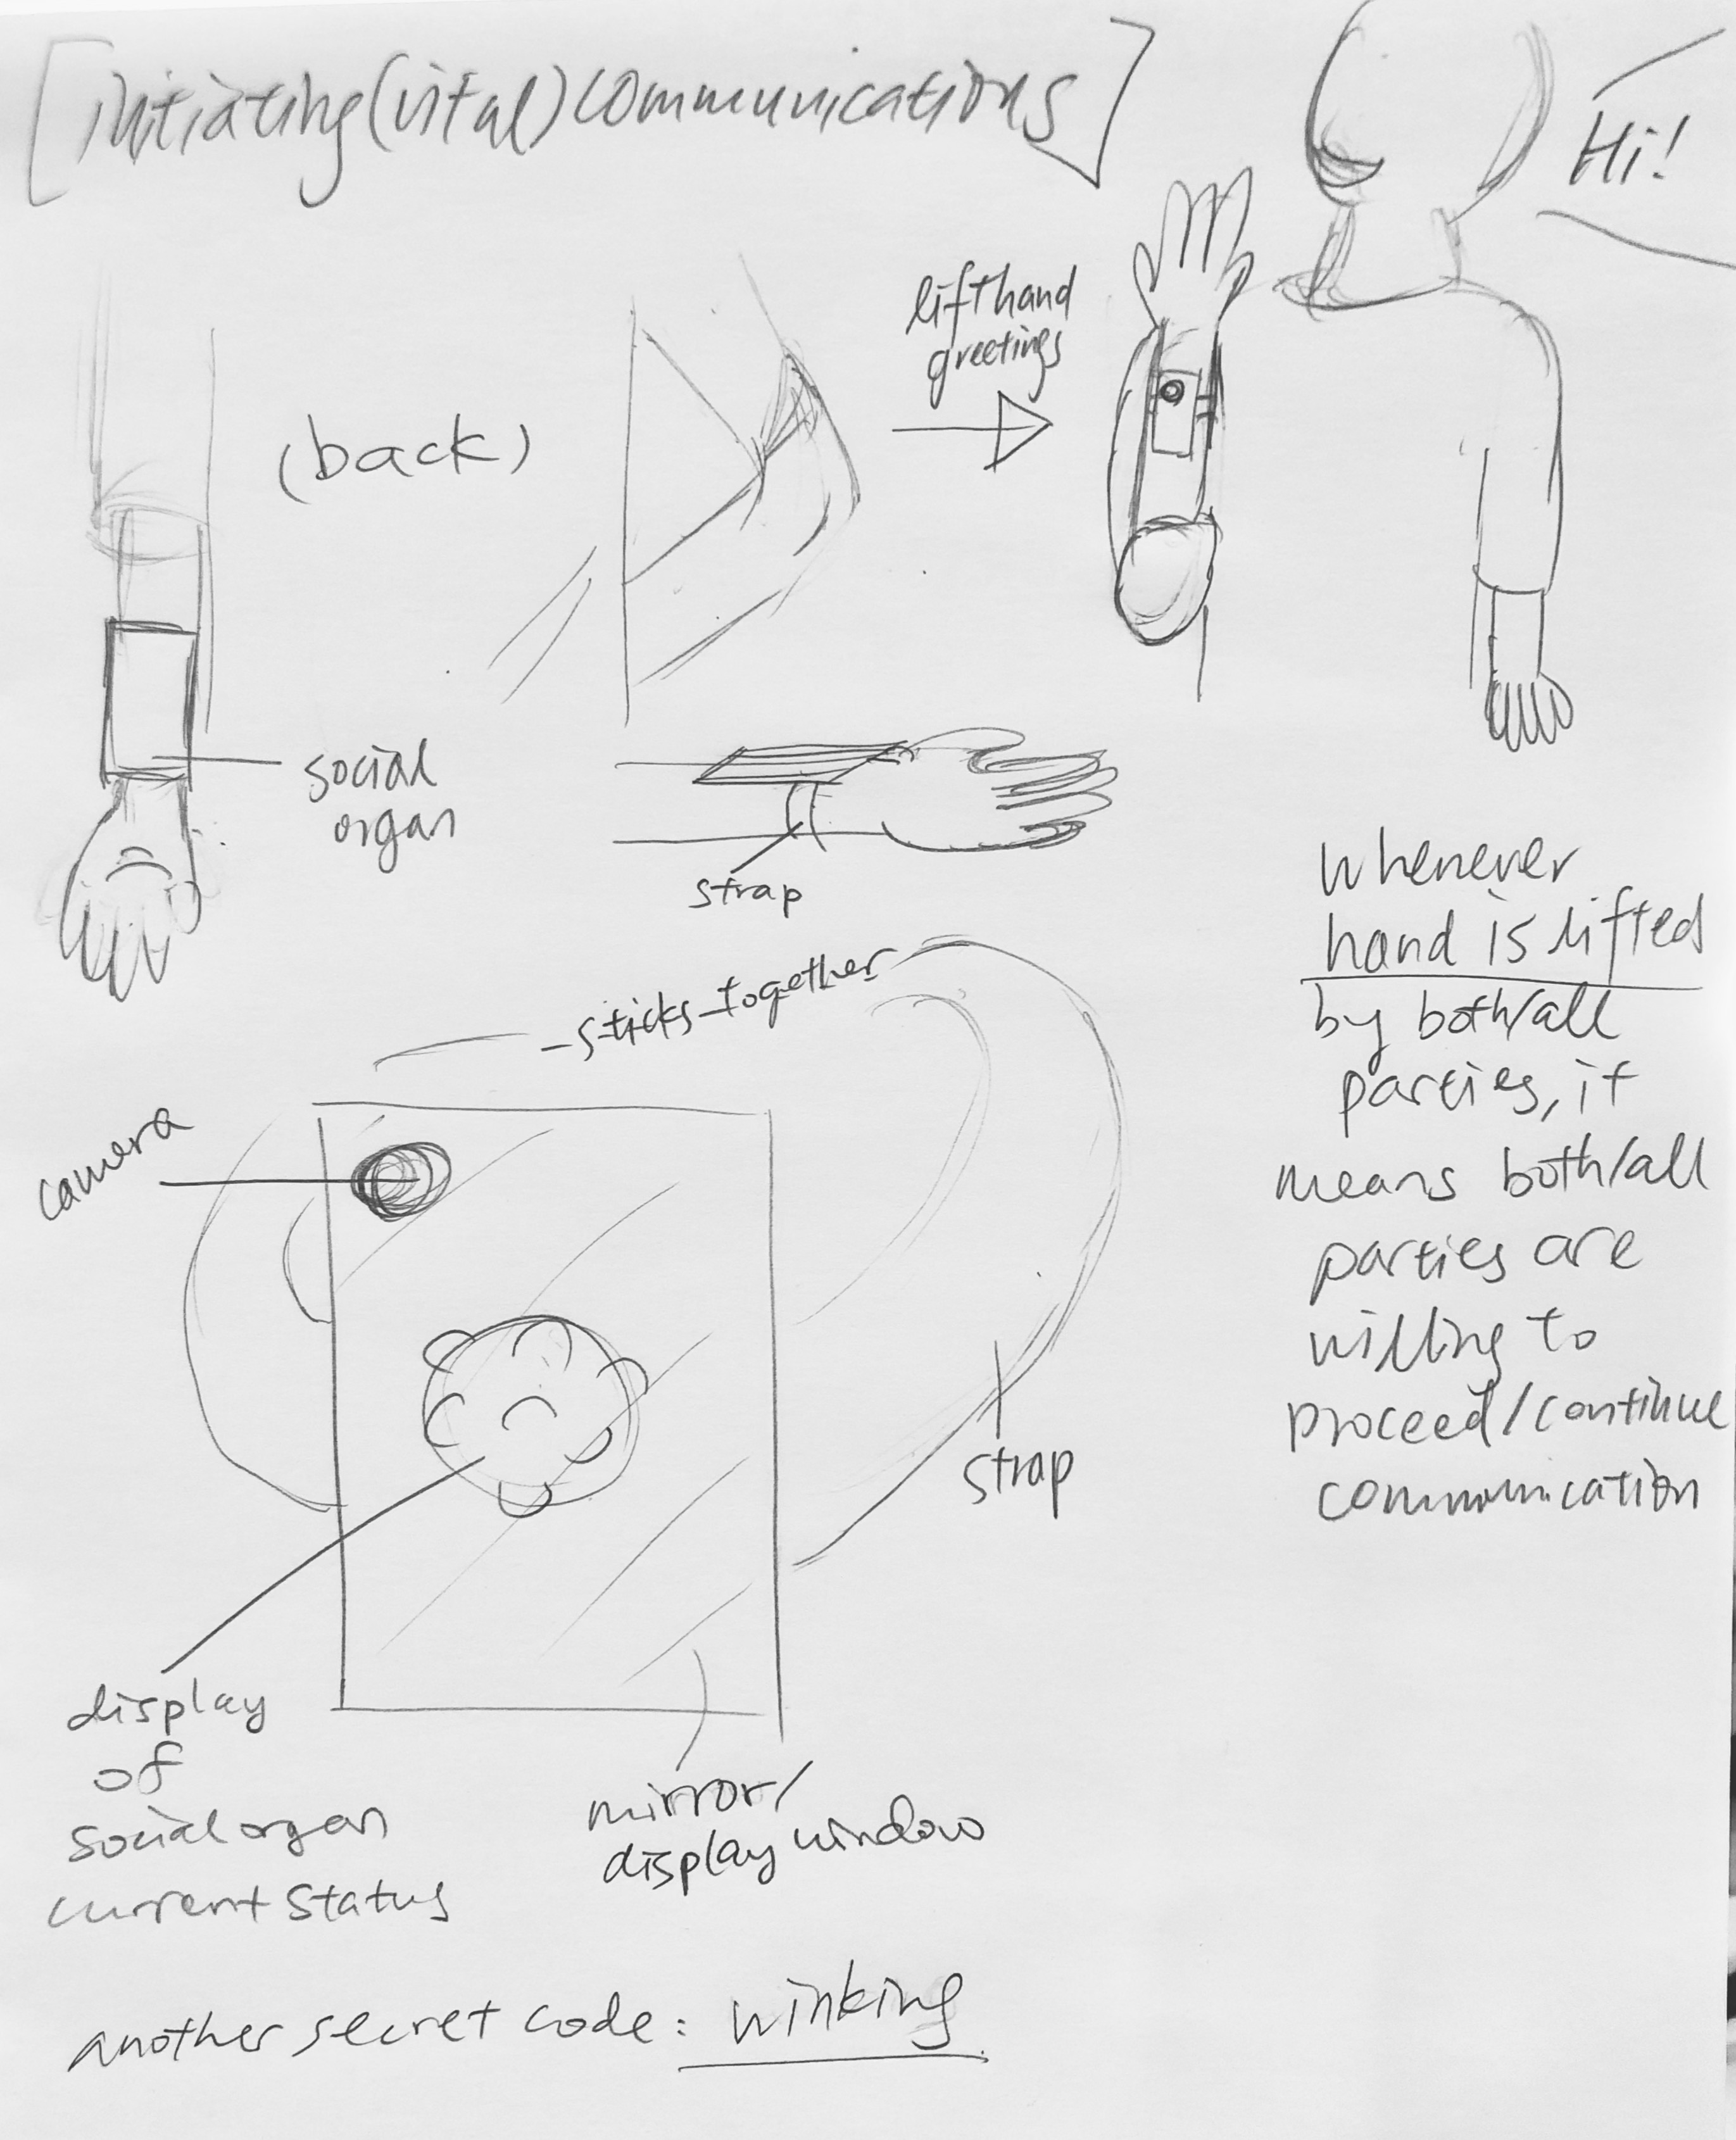 [initiating(vital)communications]
Hi!
lift hand
greetings
(back)
social
organ
strap
whenever
hand is lifted
by both/all
parties, it
means both/all
parties are
willing to
proceed/continue
communication
-sticks together
camera
strap
display
of
social organ
current status
mirror/
display window
another secret code: winking